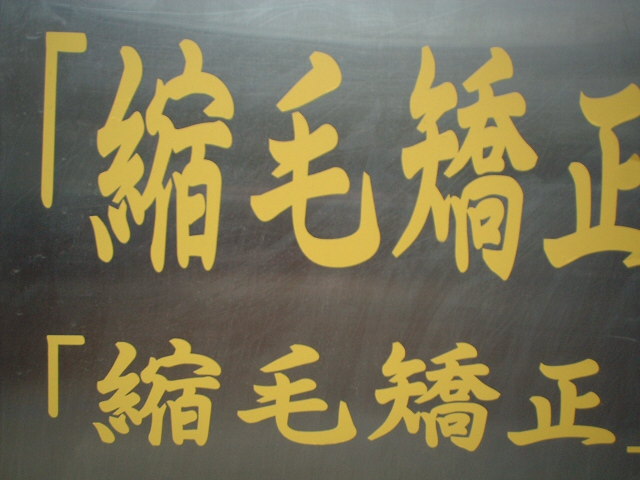 「縮毛矯正
「縮毛矯正」